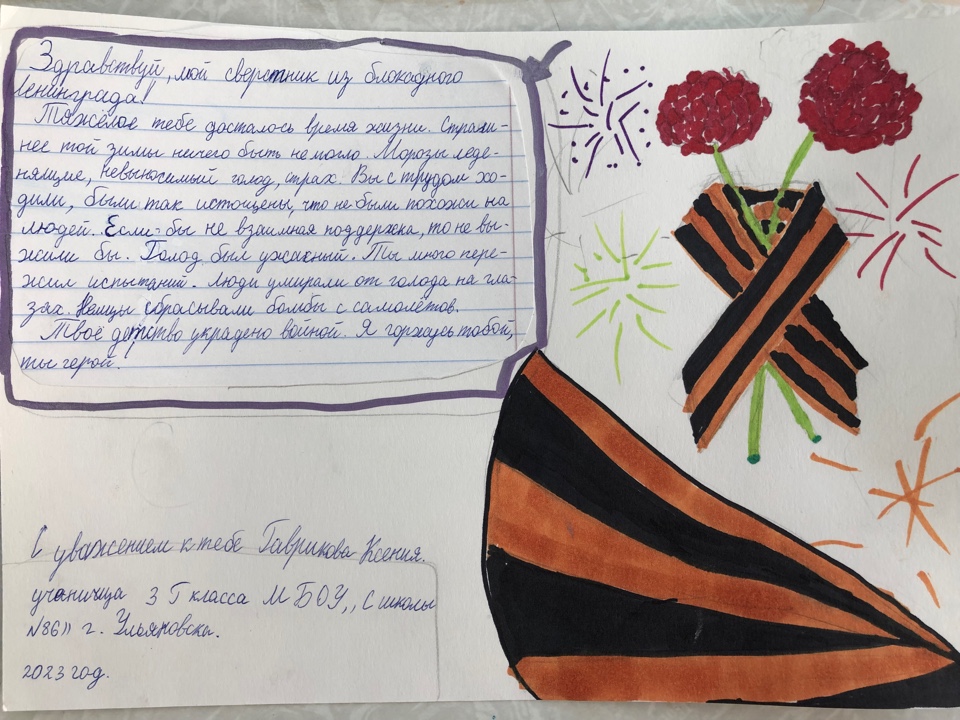 Здравствуй, мой сверстник из блокадного
Ленинграда!
Тяжёлое тебе досталось время жизни. Страш-
нее той зимы ничего быть не могло. Морозы леде-
нящие, невыносимый голод, страх. Вы с трудом хо-
дили, были так истощены, что не были похожи на
людей. Если-бы не взаимная поддержка, то не вы-
жили бы. Голод был ужасный. Ты много пере-
жил испытаний. Люди умирали от голода на гла-
зах. Немцы сбрасывали бомбы с самолётов.
Твоё детство украдено войной. Я горжусь тобой,
ты герой.
С уважением к тебе Гаврикова Ксения.
ученица 3 Г класса МБОУ ,, С школы
№86" г. Ульяновска.
2023 год.